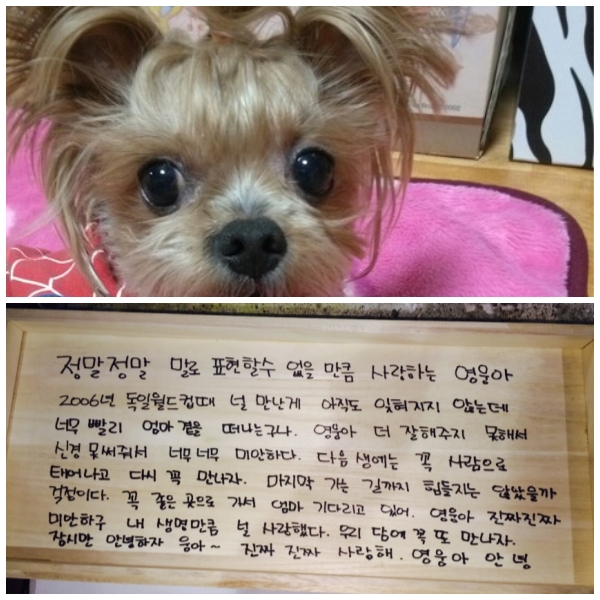 정말정말 말로 표현할수 없을 만큼 사랑하는 영웅아
2006년 독일월드컵때 널 만난게 아직도 잊혀지지 않는데
너무 빨리 엄마 곁을 떠나는구나. 영웅아 더 잘해주지 못해서
신경 못써줘서 너무너무 미안하다. 다음 생에는 꼭 사람으로
태어나고 다시 꼭 만나자. 마지막 가는 길까지 힘들지는 않았을까
걱정이다. 꼭 좋은 곳으로 가서 엄마 기다리고 있어. 영웅아 진짜진짜
미안하구 내 생명만큼 널 사랑했다. 우리 담에 꼭 또 만나자.
잠시만 안녕하자 웅아~ 진짜 진짜 사랑해. 영웅아 안녕